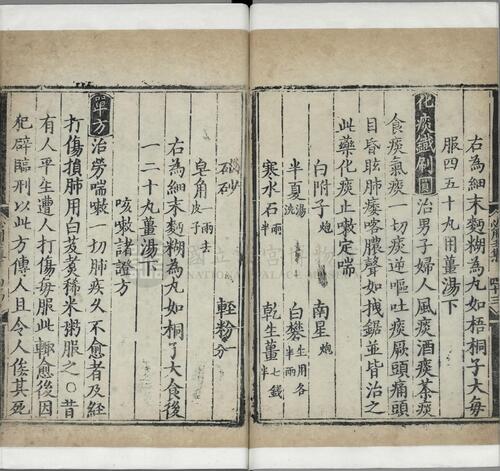 右為細末麪糊為丸如梧桐子大每
服四五十丸用薑湯下
化痰鐵刷圓 治男子婦人風痰酒痰茶痰
食痰氣痰一切痰逆嘔吐痰厥頭痛頭
目昏眩肺痿喀膿聲如拽鋸並皆治之
此藥化痰止嗽定喘
白附子炮 南星炮
半夏湯洗 白礬生用各半兩
寒水石半兩 乾生薑七錢半
硇砂 輕粉
皂角一兩去皮子
右為細末麪糊為丸如桐子大食後
一二十丸薑湯下
咳嗽諸證方
單方 治勞喘嗽一切肺痰久不愈者及經
打傷損肺用白芨煮稀米粥服之○昔
有人平生遭人打傷每服此輒愈後因
犯辟臨刑以此方傳人且令人俟其死